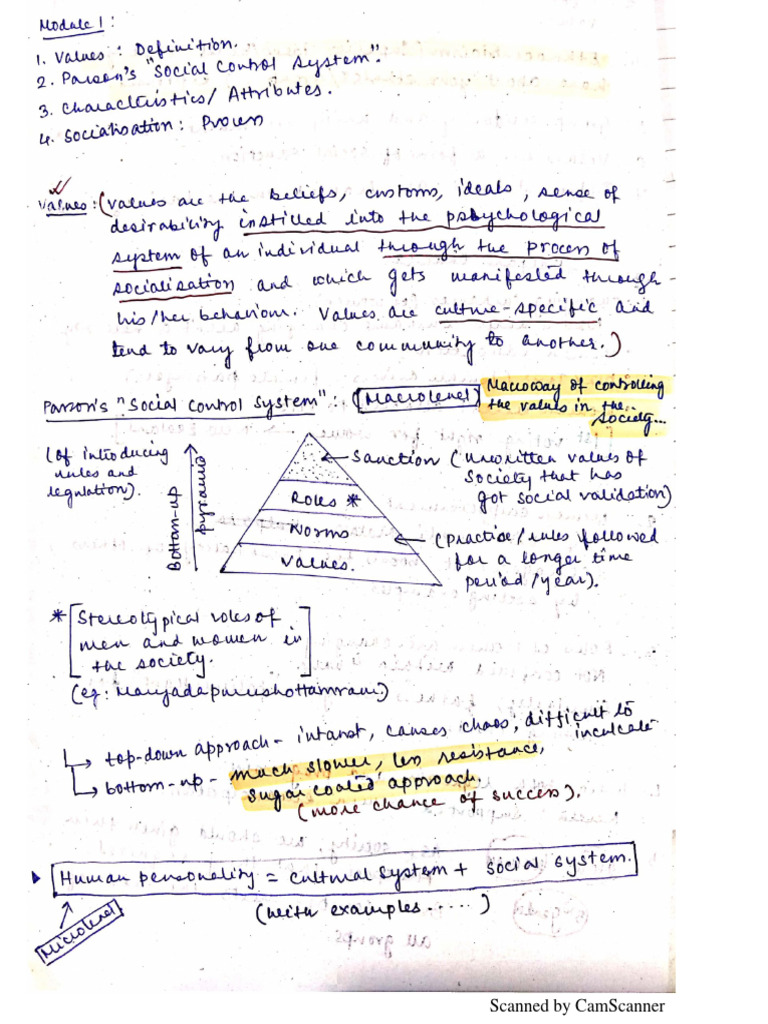 Module 1 :
1. Values : Definition.
2. Parson's "Social Control System".
3. Characteristics/ Attributes.
4. Socialisation : Process
Values : (Values are the beliefs, customs, ideals, sense of
desirability instilled into the psychological
system of an individual through the process of
socialisation and which gets manifested through
his/her behaviour. Values are culture-specific and
tend to vary from one community to another.)
Parson's "Social Control System" : (Macrolevel) Macroway of controlling
the values in the
society...
(of introducing
rules and
regulation).
Bottom-up
pyramid
Sanction (unwritten values of
society that has
got social validation)
Roles *
Norms
(practice/rules followed
for a longer time
period/year).
Values.
* [Stereotypical roles of
men and women in
the society.]
(eg: Maryadapurushottamram)
→ top-down approach - instant, causes chaos, difficult to
inculcate
→ bottom-up - much slower, less resistance,
sugar coated approach.
(more chance of success).
Human personality = cultural system + social system.
(with examples.....)
Microlevel
Scanned by CamScanner